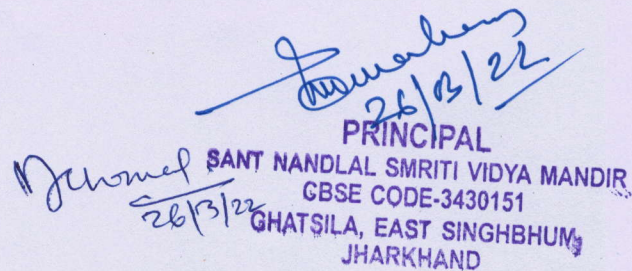 26/03/22
PRINCIPAL
SANT NANDLAL SMRITI VIDYA MANDIR
CBSE CODE-3430151
26/3/22
GHATSILA, EAST SINGHBHUM,
JHARKHAND